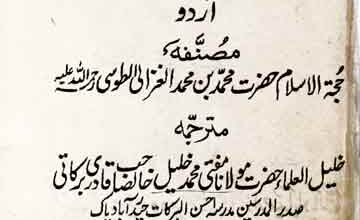 اردو
مصنّفہ
حجۃ الاسلام حضرت محمد بن محمد الغزالی الطوسی رحمۃ اللہ علیہ
مترجمہ
خلیل العلماء حضرت مولانا مفتی محمد خلیل خانصاحب قادری برکاتی
صدر المدرسین مدرسہ احسن البرکات حیدرآباد پاک